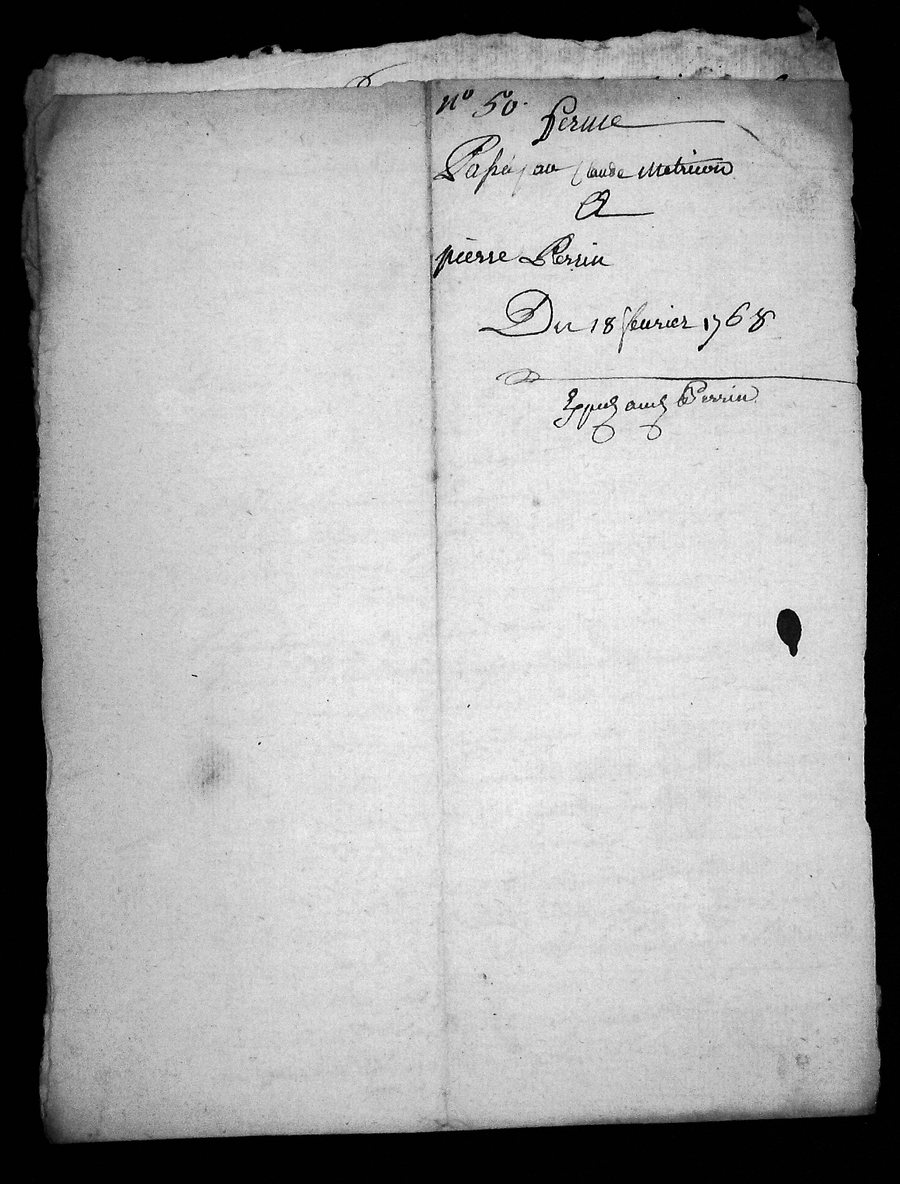 n° 50.
ferme
Passé par Claude Matricon
A
pierre Perrin
Du 18 fevrier 1768
Exped. aud. Perrin